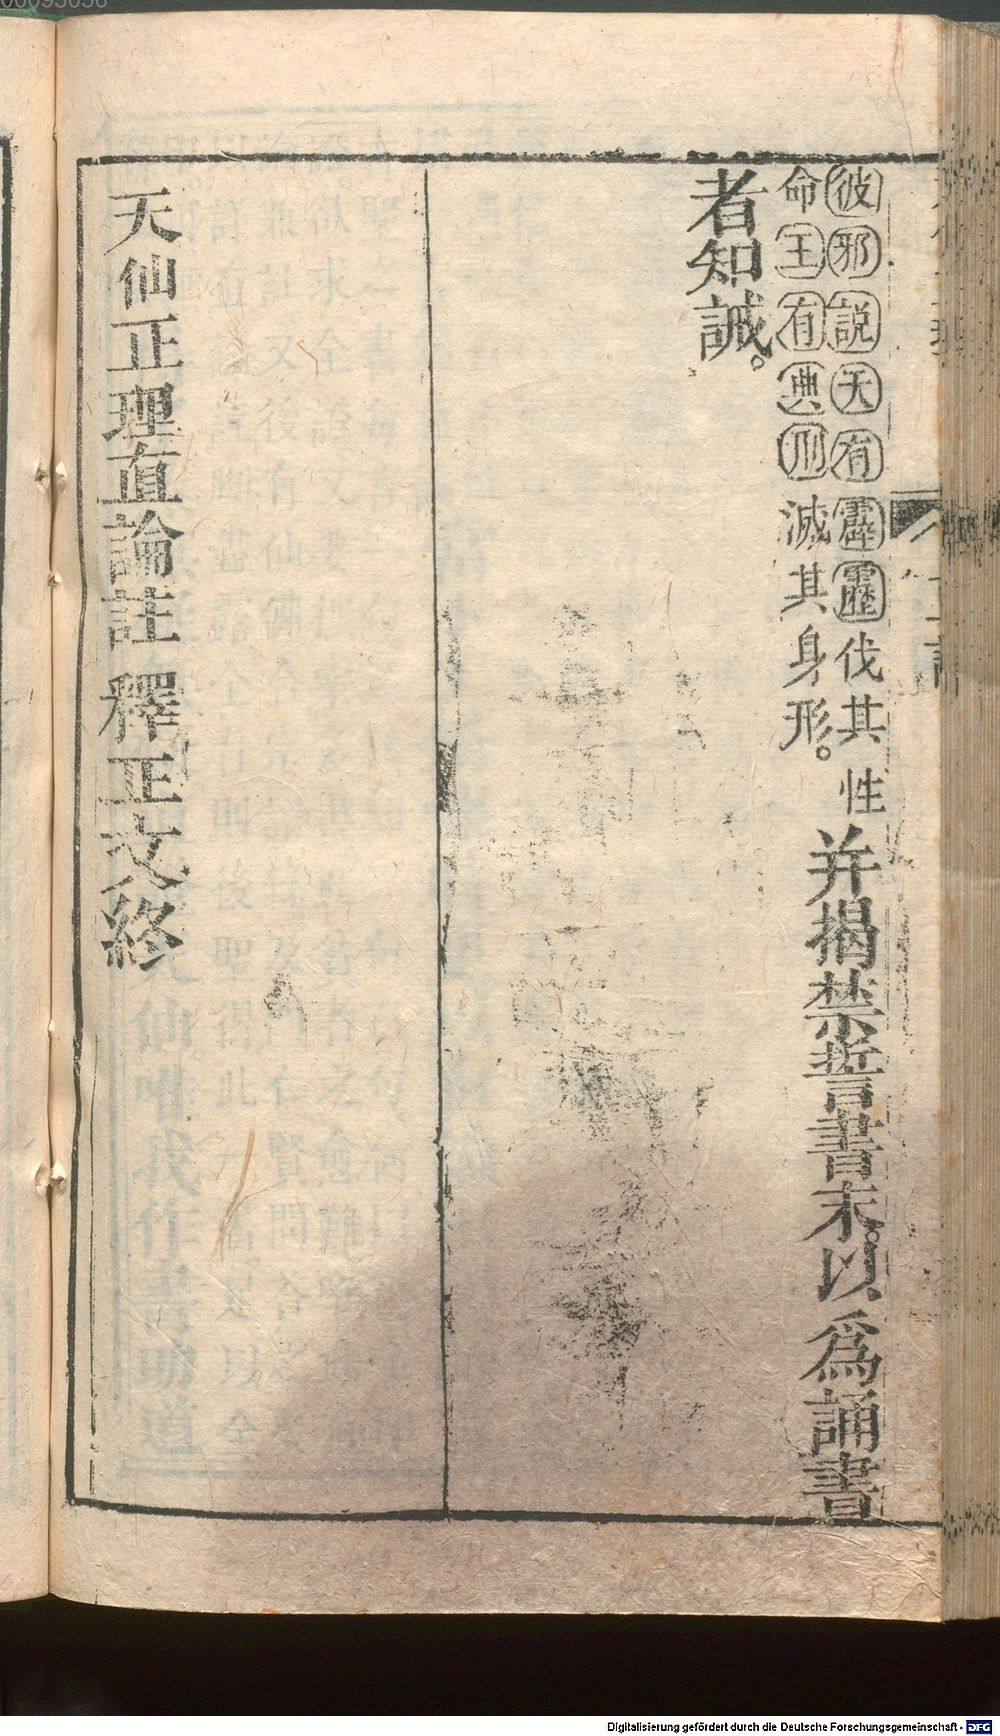 彼邪説天有霹靂伐其性
命王有典刑滅其身形。
并揭禁誓書末。以爲誦書
者知誡。
天仙正理直論註釋正文終
Digitalisierung gefördert durch die Deutsche Forschungsgemeinschaft - DFG